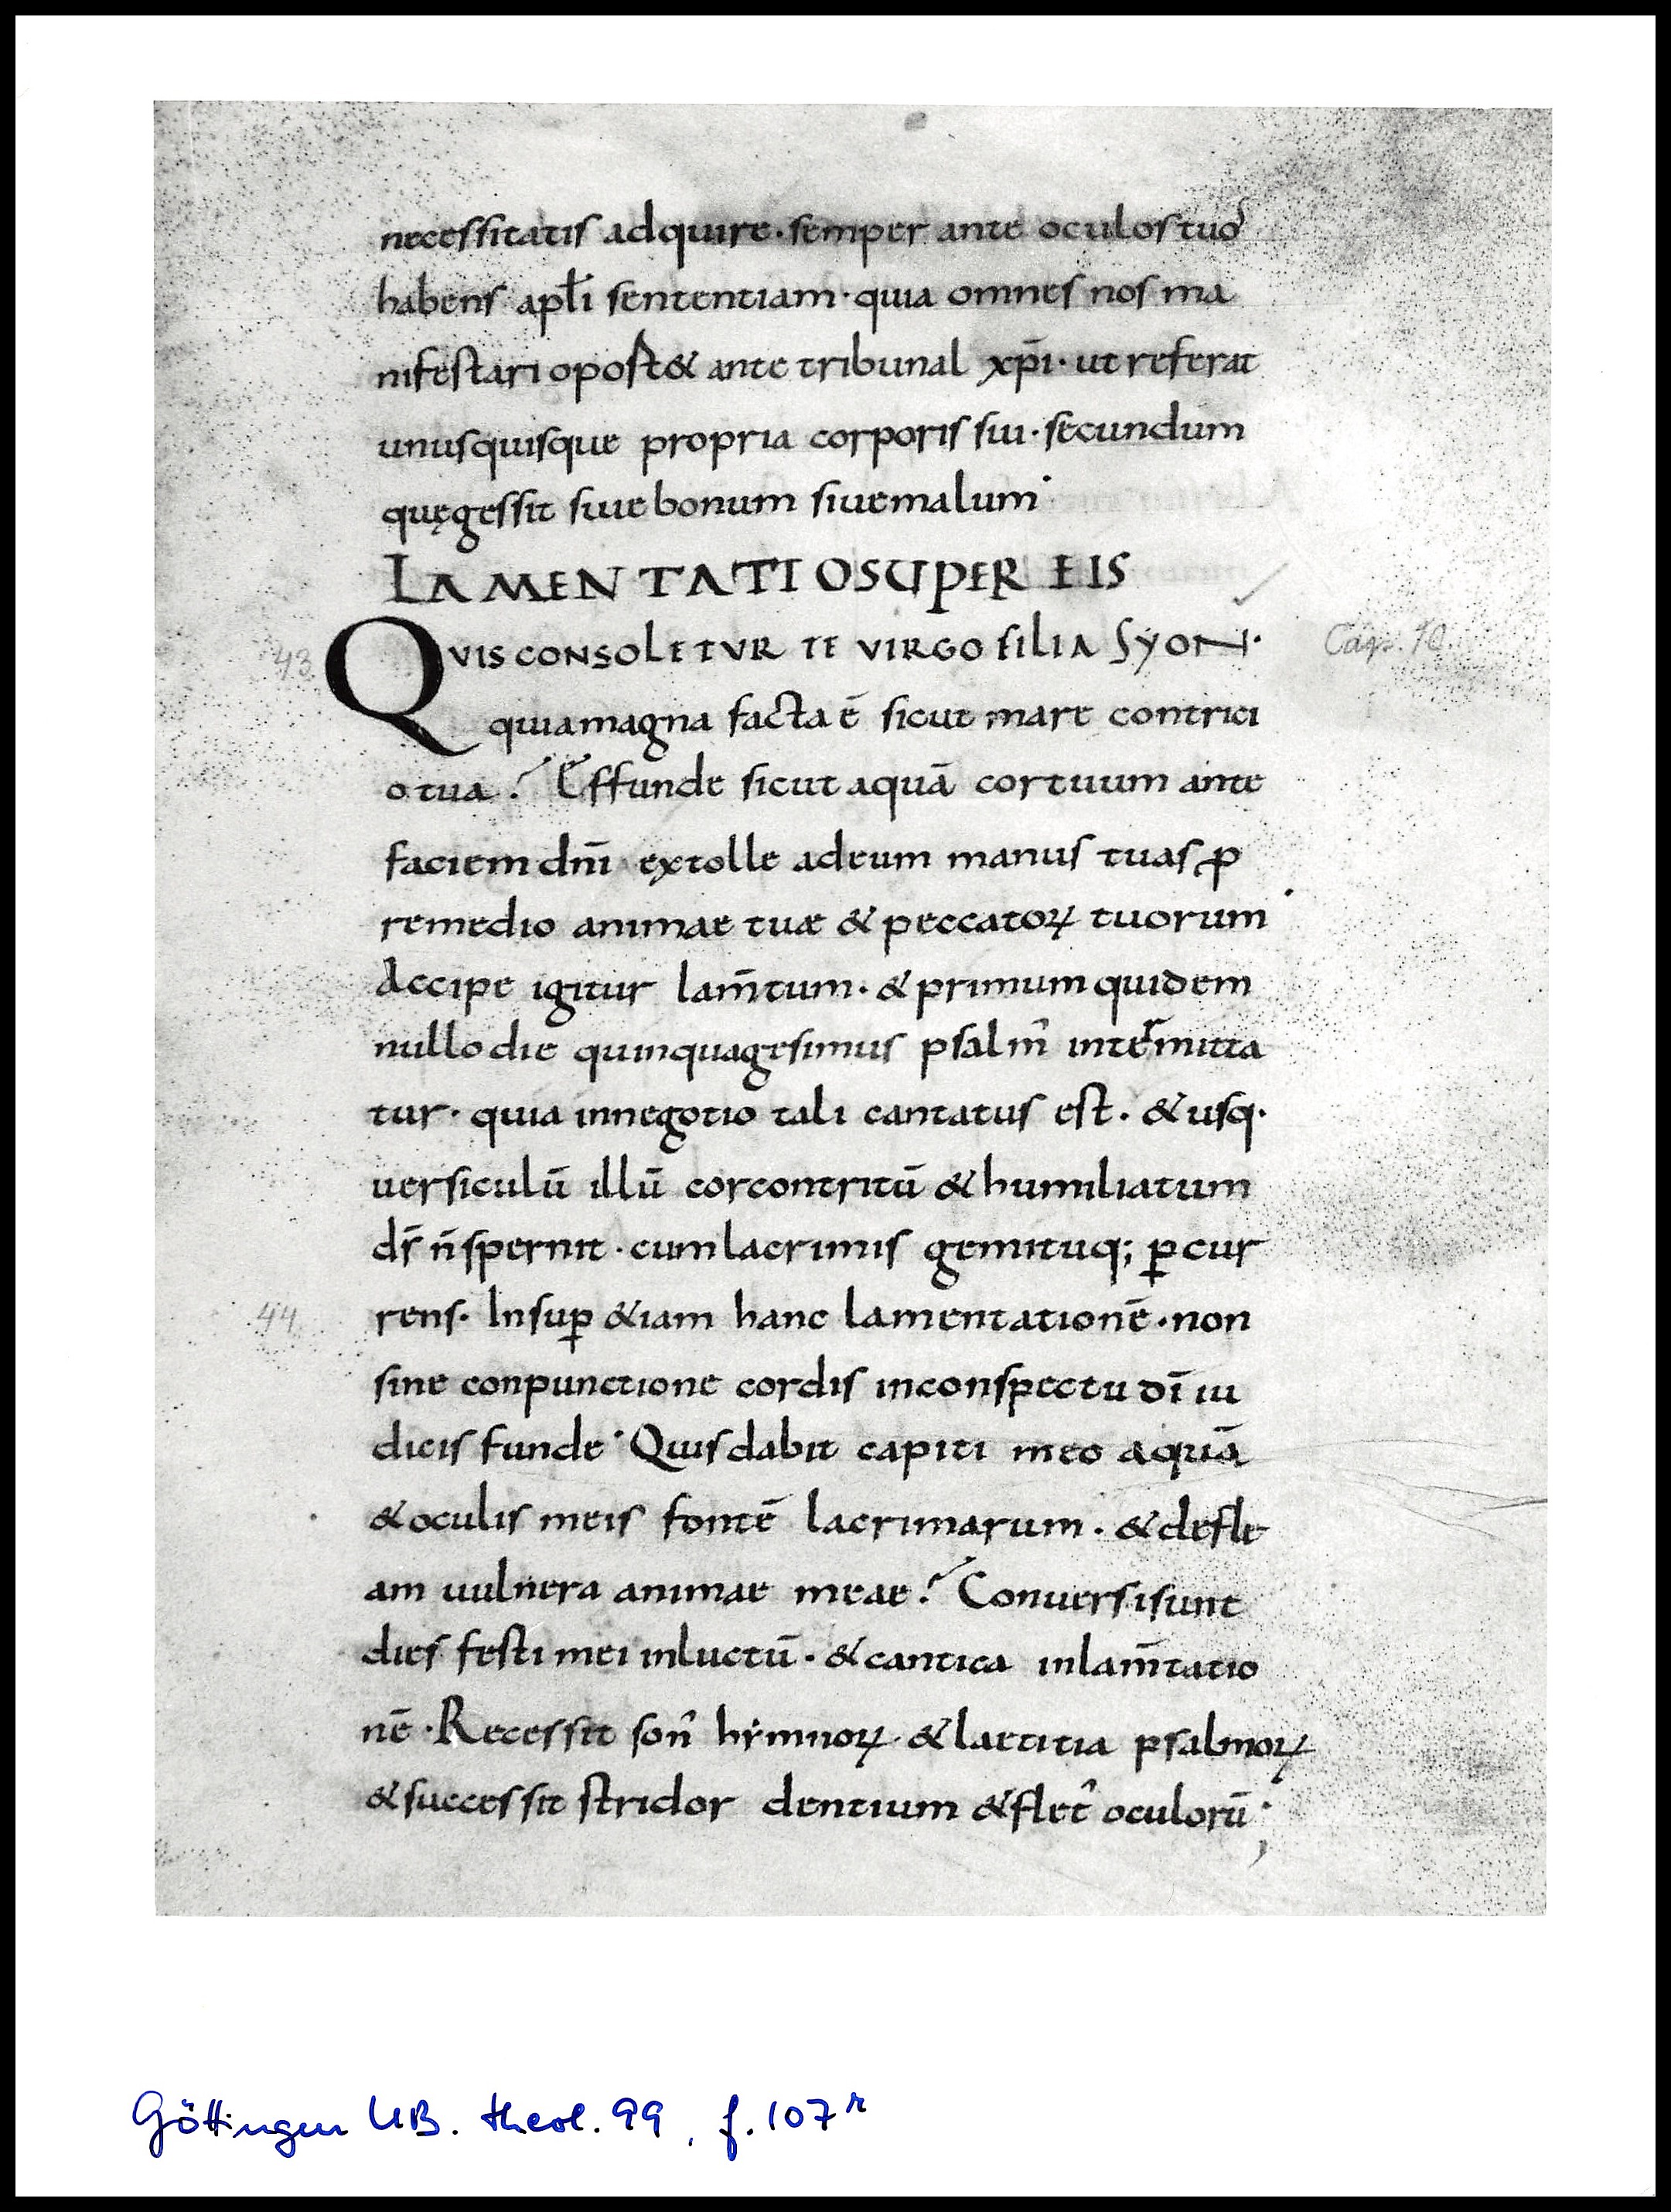 necessitatis adquire · semper ante oculos tuos
habens apl̄i sententiam · quia omnes nos ma
nifestari opost& ante tribunal xp̄i · ut referat
unusquisque propria corporis sui · secundum
quęgessit siue bonum siue malum ·
LAMENTATIO SUPER EIS
43 QVIS CONSOLETVR TE VIRGO FILIA SYON · Cap. 10
quia magna facta ē sicut mare contrici
o tua? Effunde sicut aquā cor tuum ante
faciem dn̄i extolle ad eum manus tuas ꝓ
remedio animae tuæ & peccatoꝝ tuorum ·
Accipe igitur lam̄tum · & primum quidem
nullo die quinquagesimus psalm᾽ intermitta
tur · quia in negotio tali cantatus est · & usq·
uersiculū illū cor contritū & humiliatum
ds̄ n̄ spernit · cum lacrimis gemituq; ꝑcur
44 rens · Insuꝑ &iam hanc lamentationē · non
sine conpunctione cordis in conspectu dī iu
dicis funde · Quis dabit capiti meo aquā
& oculis meis fontē lacrimarum · & defle
am uulnera animae meae? Conuersi sunt
dies festi mei in luctū · & cantica in lam̄tatio
nē · Recessit son᾽ hẏmnoꝝ & laetitia psalmoꝝ
& successit stridor dentium & flet᾽ oculorū ;
Göttingen UB. theol. 99, f. 107ʳ